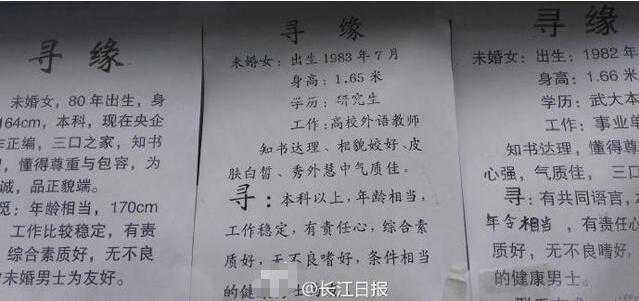 寻 缘
未婚女，80年出生，身
164cm，本科，现在央企
作正编，三口之家，知书
，懂得尊重与包容，为
诚，品正貌端。
觅：年龄相当，170cm
工作比较稳定，有责
综合素质好，无不良
未婚男士为友好。
寻 缘
未婚女：出生1983年7月
身高：1.65米
学历：研究生
工作：高校外语教师
知书达理、相貌姣好、皮
肤白皙、秀外慧中气质佳。
寻：本科以上，年龄相当，
工作稳定，有责任心，综合素
质好，无不良嗜好，条件相当
的健康
寻 缘
未婚女：出生：1982年
身高：1.66米
学历：武大本
工作：事业单
知书达理，懂得尊
心强，气质佳，三口
寻：有共同语言，
年令相当，有责任心
质好，无不良嗜好，
的健康男士。
@长江日报